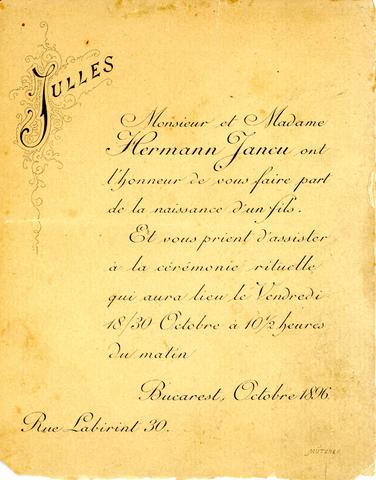 JULLES
Monsieur et Madame
Hermann Jancu ont
l'honneur de vous faire part
de la naissance d'un fils.
Et vous prient d'assister
à la cérémonie rituelle
qui aura lieu le Vendredi
18/30 Octobre à 10½ heures
du matin
Bucarest, Octobre 1896.
Rue Labirint 30.
MUTZNER